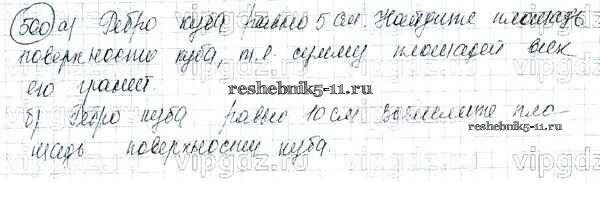 500 а) Ребро куба равно 5 см. Найдите площадь
поверхности куба, т.е. сумму площадей всех
его граней.
reshebnik5-11.ru
б) Ребро куба равно 10 см Вычислите пло-
reshebnik5-11.ru
щадь поверхности куба.